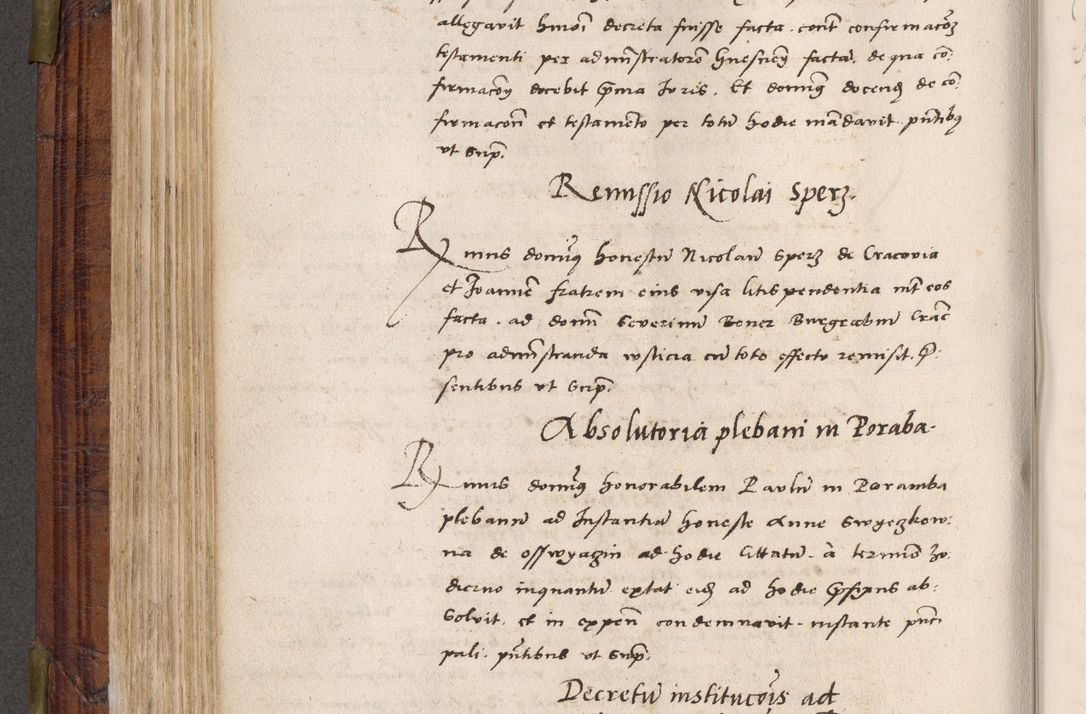 allegavit hmoi decreta fuisse facta. cont confirmacoз
testamenti per administratore Gnesneñ facta, de qua co
firmacoñ docebit Prima Juris. Et doming docenđ de co
firmacoñ et testamento per totu hodie mandavit. pntibq
vt supr.
Remissio Nicolai Sperz.
Rmus domiq honestu Nicolau Sperz de Cracovia
et Joannē fratrem eius visa litispendentia int eos
facta. ad domn Severinu Boner Burgrabiu Crac
pro administranda iusticia cu toto effectu remisit. P:
sentibus vt supr.
Absolutoria plebani in Poraba.
Rmus domiq honorabilem Paulu in Poramba
plebanu ad Instantia honeste Anne Swyeczkow:
na de Osswyaczin ad hodie Cittatu. à termino ho:
dierno inquantu extat eid ad hodie Prefixus ab:
solvit. et in expeñ condemnavit. instante pnci
pali. pntibus vt supr.
Decretu institucois ad